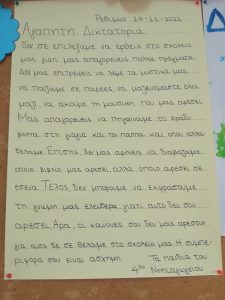 Ρέθυμνο 14-11-2022
Αγαπητή Δικτατορία,
δεν σε επιλέξαμε να έρθεις στο σχολείο
μας γιατί μας απαγορεύεις πολλά πράγματα.
Δεν μας επιτρέπεις να λέμε τα μυστικά μας,
να παίζουμε σε παρέες, να μαζευόμαστε όλοι
μαζί, να ακούμε τη μουσική που μας αρέσει.
Μας απαγορεύεις να πηγαίνουμε το βράδυ
βόλτα στη γιαγιά και το παππού και όπου αλλού
θέλουμε. Επίσης, δεν μας αφήνεις να διαβάζουμε
όποιο βιβλίο μας αρέσει αλλά όποιο αρέσει σε
εσένα. Τέλος, δεν μπορούμε να εκφράσουμε
τη γνώμη μας ελεύθερα γιατί αυτό δεν σου
αρέσει. Άρα, οι κανόνες σου δεν μας αρέσουν
για αυτό δε σε θέλουμε στο σχολείο μας. Η συμπε-
ριφορά σου είναι άσχημη. Τα παιδιά του
4ου Νηπιαγωγείου